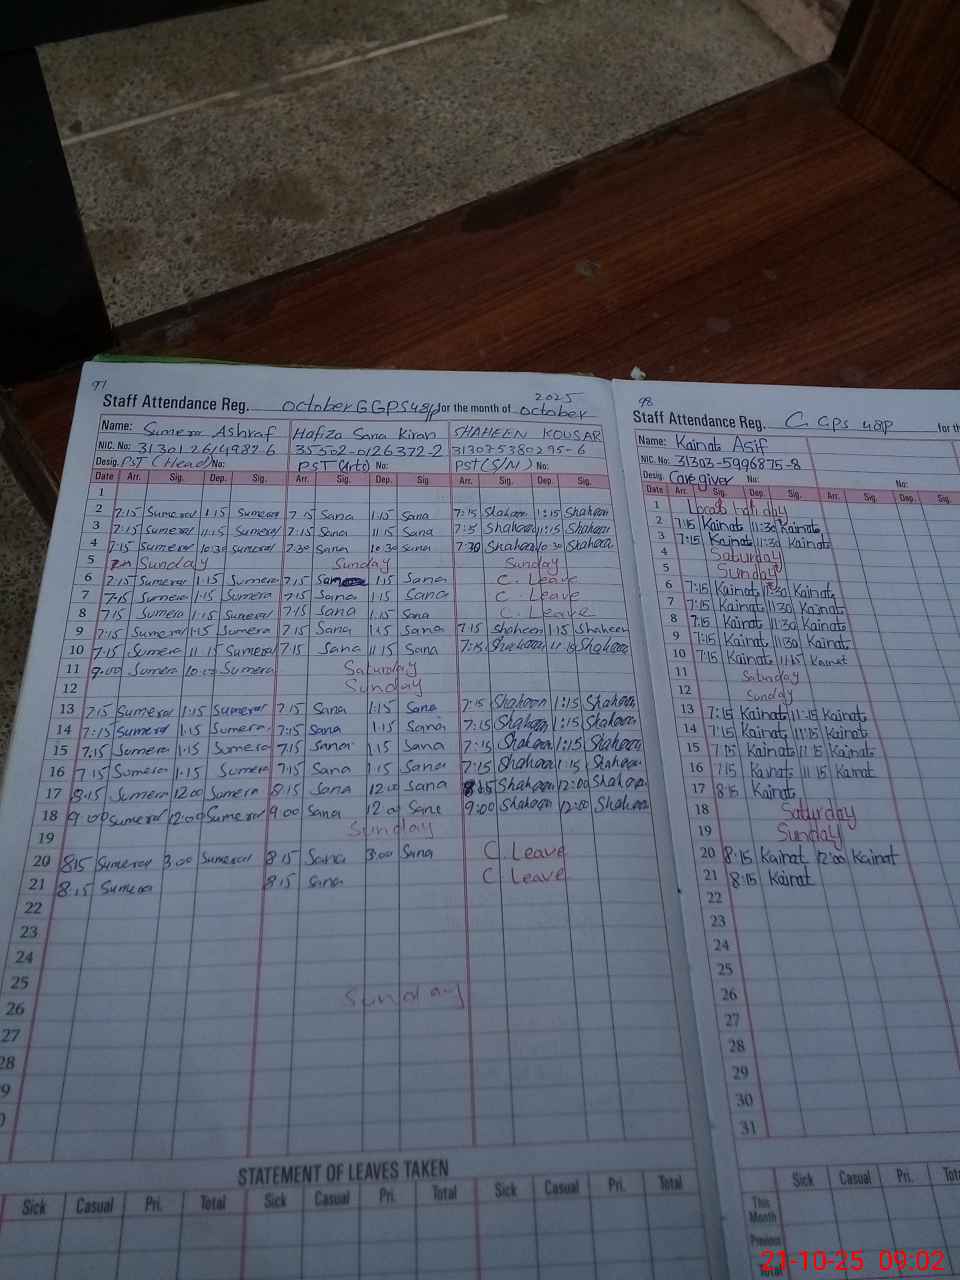 97
Staff Attendance Reg. October GGPS 48/P for the month of October 2025
Name: Sumera Ashraf Hafiza Sana Kiran SHAHEEN KOUSAR
NIC. No: 35502-0126372-2
Desig. PST (Head) No: PST (Arts) No: PST (S/M) No:
Date Arr. Sig. Dep. Sig. Arr. Sig. Dep. Sig. Arr. Sig. Dep. Sig.
1
2 7:15 Sumera 1:15 Sumera 7:15 Sana 1:15 Sana 7:15 Shaheen 1:15 Shaheen
3 7:15 Sumera 11:15 Sumera 7:15 Sana 11:15 Sana 7:15 Shaheen 11:15 Shaheen
4 7:15 Sumera 10:30 Sumera 7:30 Sana 10:30 Sana 7:30 Shaheen 10:30 Shaheen
5 Sunday Sunday Sunday
6 7:15 Sumera 1:15 Sumera 7:15 Sana 1:15 Sana C. Leave
7 7:15 Sumera 1:15 Sumera 7:15 Sana 1:15 Sana C. Leave
8 7:15 Sumera 1:15 Sumera 7:15 Sana 1:15 Sana C. Leave
9 7:15 Sumera 1:15 Sumera 7:15 Sana 1:15 Sana 7:15 Shaheen 1:15 Shaheen
10 7:15 Sumera 11:15 Sumera 7:15 Sana 11:15 Sana 7:15 Shaheen 11:15 Shaheen
11 9:00 Sumera Sumera Saturday
12 Sunday
13 7:15 Sumera 1:15 Sumera 7:15 Sana 1:15 Sana 7:15 Shaheen 1:15 Shaheen
14 7:15 Sumera 1:15 Sumera 7:15 Sana 1:15 Sana 7:15 Shaheen 1:15 Shaheen
15 7:15 Sumera 1:15 Sumera 7:15 Sana 1:15 Sana 7:15 Shaheen 1:15 Shaheen
16 7:15 Sumera 1:15 Sumera 7:15 Sana 1:15 Sana 7:15 Shaheen 1:15 Shaheen
17 8:15 Sumera 12:00 Sumera 8:15 Sana 12:00 Sana 8:15 Shaheen 12:00 Shaheen
18 9:00 Sumera 12:00 Sumera 9:00 Sana 12:00 Sana 9:00 Shaheen 12:00 Shaheen
19 Sunday
20 8:15 Sumera 3:00 Sumera 8:15 Sana 3:00 Sana C. Leave
21 8:15 Sumera 8:15 Sana C. Leave
22
23
24
25
26 Sunday
27
28
9
STATEMENT OF LEAVES TAKEN
Sick Casual Pri. Total Sick Casual Pri. Total Sick Casual Pri. Total
98
Staff Attendance Reg. G GPS 48P for th
Name: Kainat Asif
NIC. No: 31303-5996875-8
Desig. Caregiver No: No:
Date Arr. Sig. Dep. Sig. Arr. Sig. Dep. Sig. Arr. Sig. Dep. Sig.
1 Local holiday
2 7:15 Kainat 11:30 Kainat
3 7:15 Kainat 11:30 Kainat
4 Saturday
5 Sunday
6 7:15 Kainat 11:30 Kainat
7 7:15 Kainat 11:30 Kainat
8 7:15 Kainat 11:30 Kainat
9 7:15 Kainat 11:30 Kainat
10 7:15 Kainat 11:15 Kainat
11 Saturday
12 Sunday
13 7:15 Kainat 11:15 Kainat
14 7:15 Kainat 11:15 Kainat
15 7:15 Kainat 11:15 Kainat
16 7:15 Kainat 11:15 Kainat
17 8:15 Kainat
18 Saturday
19 Sunday
20 8:15 Kainat 12:00 Kainat
21 8:15 Kainat
22
23
24
25
26
27
28
29
30
31
Sick Casual Pri. Tot
This Month
Previous
Total
21-10-25 09:02